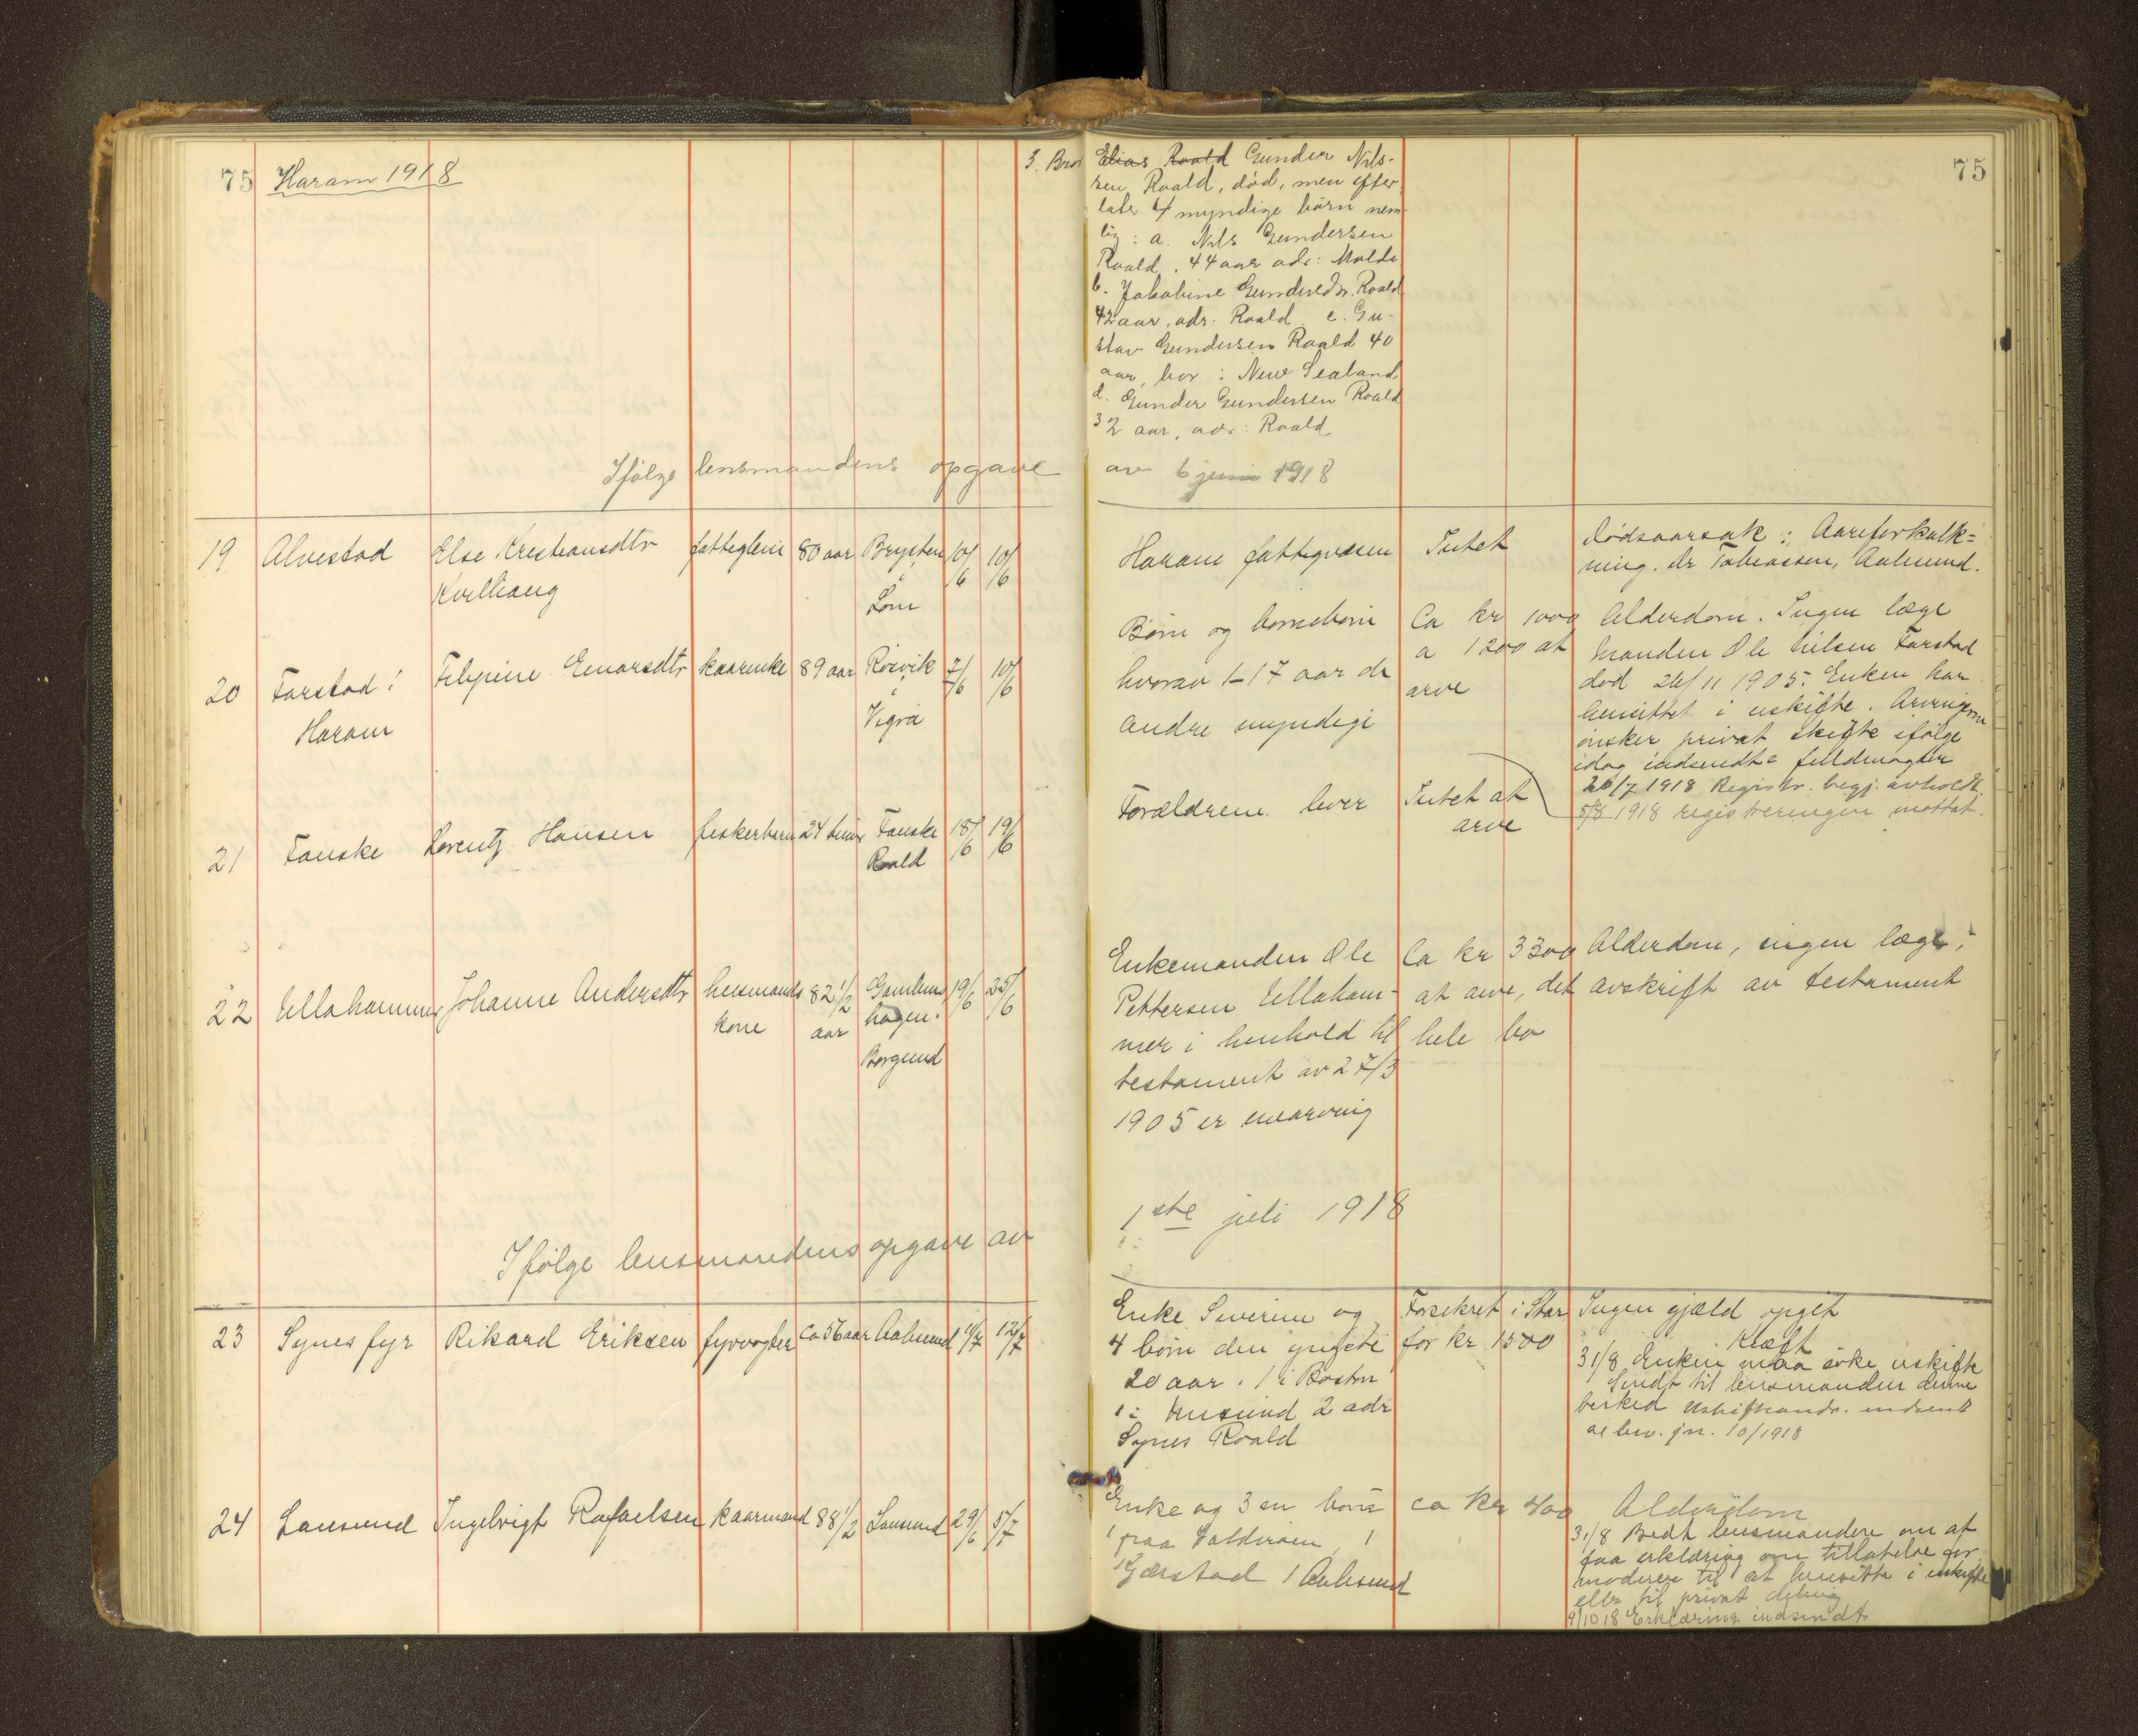 75 Haram 1918
75
3. Bror Elias Roald Gunder Nils-
sen Roald, død, men efter
later 4 myndige børn nem-
lig: a. Nils Gundersen
Roald, 44 aar adr: Molde
b. Jakobine Gundersdr. Roald
42 aar, adr: Roald c. Gu-
stav Gundersen Roald 40
aar, bor: New Sealand
d. Gunder Gundersen Roald
32 aar, adr: Roald.
Ifølge lensmandens opgave av 6 juni 1918
19 Alvestad Else Kristiansdtr fatteglem 80 aar 10/6 10/6
i
Lom
Haram fattigvæsen Intet Dødsaarsak: Aareforkalk=
ning. Dr Tobiassen, Aalesund.
20 Farstad i Elenarsdtr kaarenke 89 aar Røsvik 7/6 10/6
Haram i
Vigra
Børn og børnebørn Ca kr 1000 Alderdom. Ingen læge
hvorav 1-17 aar de a 1200 at Manden Ole Nilsen Farstad
andre myndige arve død 26/11 1905. Enken har
hensittet i uskifte. Arvingerne
ønsker privat skifte ifølge
idag indsendte fuldmagter
20/7 1918 Registr. begj. avholdt.
5/8 1918 registreringen mottat.
21 Fauske Lorentz Hansen fiskerbarn 24 timer Fauske 18/6 19/6
Roald
Forældrene lever Intet at
arve
22 Ullahammer Johanne Andersdtr husmands 82 1/2 19/6 25/6
kone aar
Borgund
Enkemanden Ole Ca kr 3300 Alderdom, ingen læge,
Pettersen Ullaham- at arve, det avskrift av testament
mer i henhold til hele bo
testament av 27/3
1905 er enarving
Ifølge lensmandens opgave av 1ste juli 1918
23 Synes fyr Rikard Eriksen fyrvogter ca 56 aar Aalesund 1/7 12/7
Enke Severine og Forsikret i Star Ingen gjæld opgit
4 børn den yngste for kr 1500 Kræft
20 aar. 1 i Boston 31/8 Enken maa søke uskifte
1 i 2 adr Sendt til lensmanden denne
Synes Roald beskjed
jn. 10/1918
24 Lausund Ingebrigt Rafaelsen kaarmand 88 1/2 Lausund 29/6 5/7
Enke og 3 børn ca kr 400 Alderdom
1 paa Valderøen, 1 31/8 Bedt lensmanden om at
Gjerstad 1 Aalesund faa erklæring om tillatelse for
moderen til at hensitte i uskifte
eller til privat deling
9/10 18 Erklæring indsendt